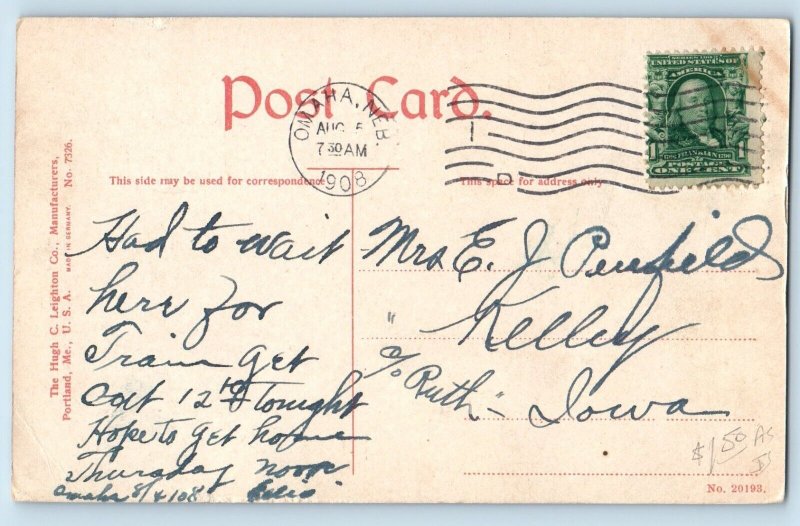 Post Card.
OMAHA, NEB.
AUG 5
7 30 AM
1908
UNITED STATES OF
AMERICA
POSTAGE
ONE CENT
1
This side may be used for correspondence
This space for address only
The Hugh C. Leighton Co., Manufacturers,
Portland, Me., U. S. A. MADE IN GERMANY. No. 7326.
Had to wait
here for
Train get
out 12 10 tonight
Hope to get home
Thursday noon
Omaha 8/4/08
Mrs E. J Penfield
Kelley
" c/o Ruth "
Iowa
$1.50 AS
IS
No. 20193.